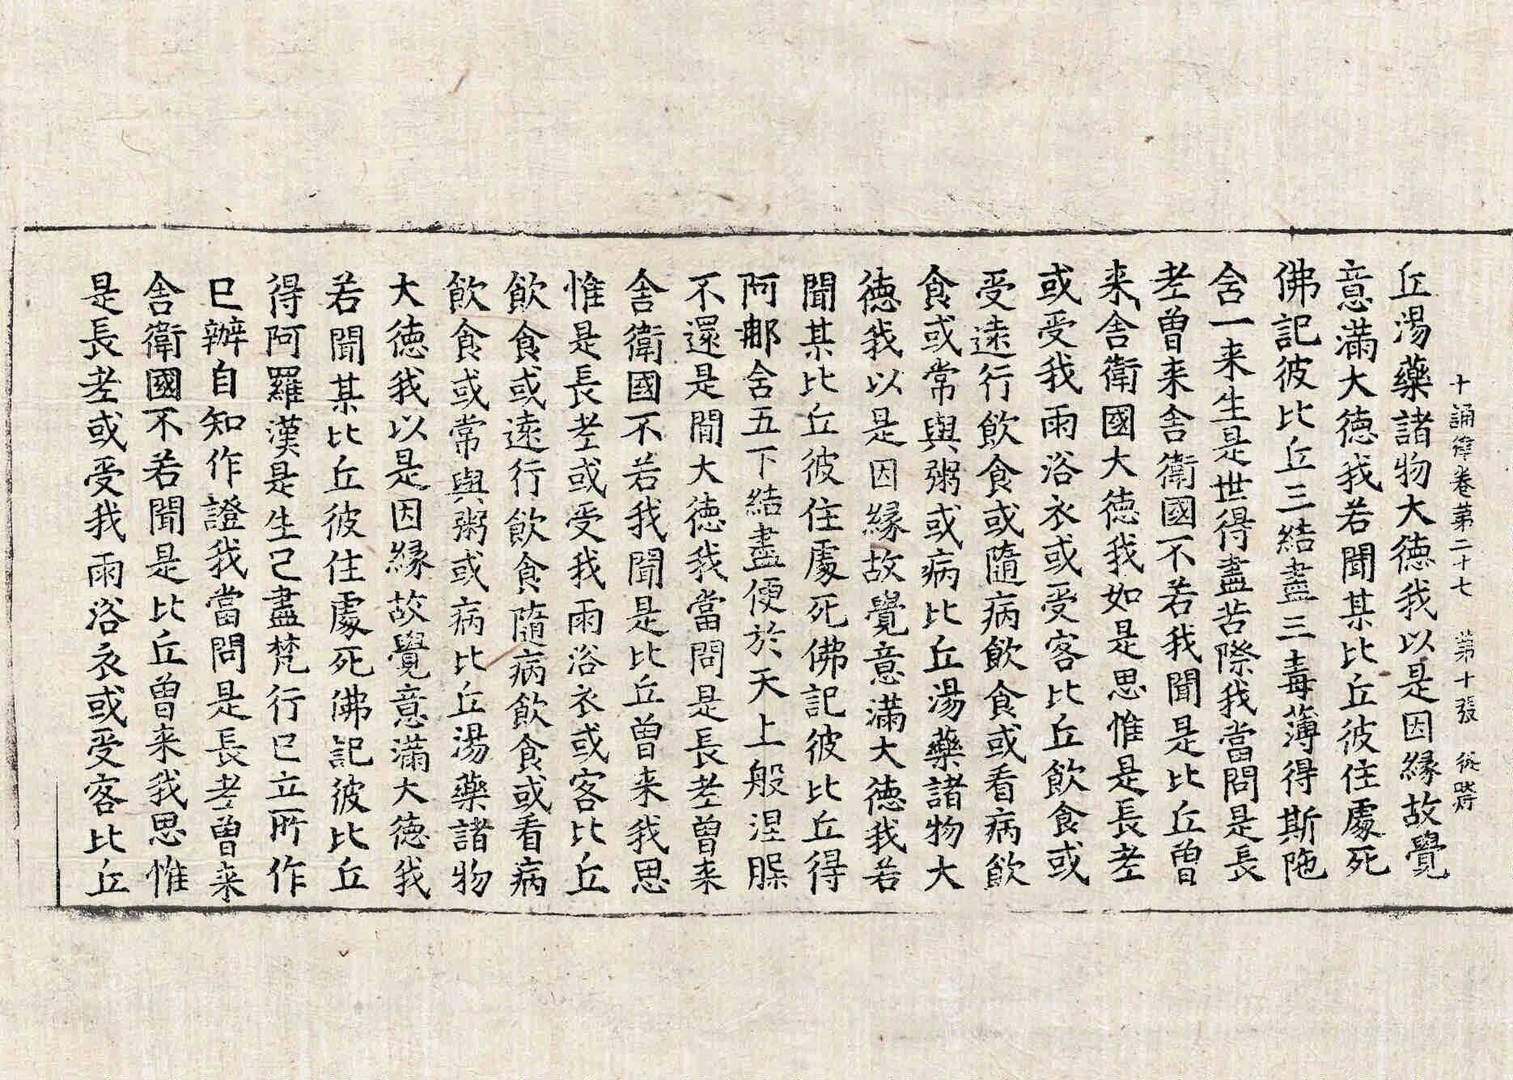 十誦律卷第二十七　第十張　從
丘湯藥諸物大徳我以是因縁故覺
意滿大徳我若聞某比丘彼住處死
佛記彼比丘三結盡三毒薄得斯陁
含一来生是世得盡苦際我當問是長
老曽来舍衛國不若我聞是比丘曽
来舍衛國大徳我如是思惟是長老
或受我雨浴衣或受客比丘飲食或
受遠行飲食或隨病飲食或看病飲
食或常與粥或病比丘湯藥諸物大
徳我以是因縁故覺意滿大徳我若
聞某比丘彼住處死佛記彼比丘得
阿郍含五下結盡便於天上般涅槃
不還是閒大徳我當問是長老曽来
舍衛國不若我聞是比丘曽来我思
惟是長老或受我雨浴衣或客比丘
飲食或遠行飲食隨病飲食或看病
飲食或常與粥或病比丘湯藥諸物
大徳我以是因縁故覺意滿大徳我
若聞某比丘彼住處死佛記彼比丘
得阿羅漢是生已盡梵行已立所作
已辦自知作證我當問是長老曽来
舍衛國不若聞是比丘曽来我思惟
是長老或受我雨浴衣或受客比丘